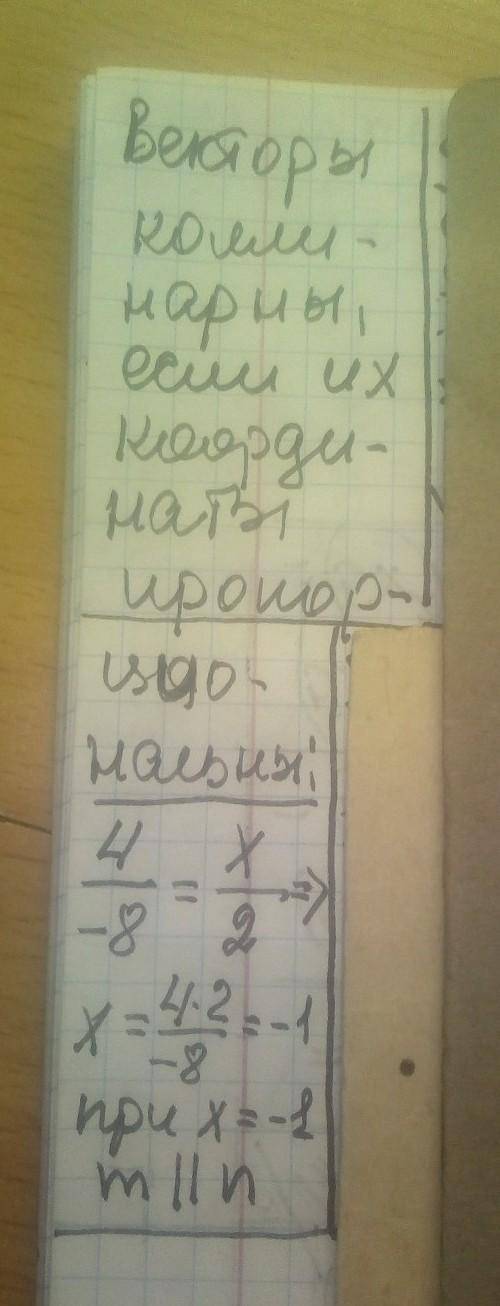 Векторы
колли-
нарны,
если их
коорди-
наты
пропор-
цио-
нальны:
4/-8 = x/2 =>
x = 4·2/-8 = -1
при x = -1
m || n